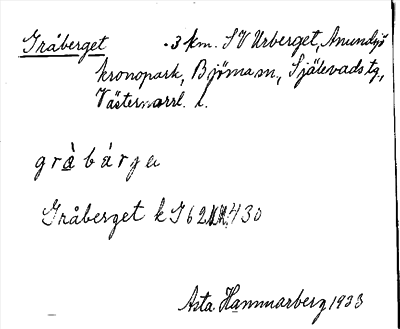 Gråberget . 3 km. SV Urberget, Amundsjö
kronopark, Björna sn., Själevads tg,
Västernorrl. l.
gràbárje
Gråberget k J62 430
Asta Hammarberg 1933